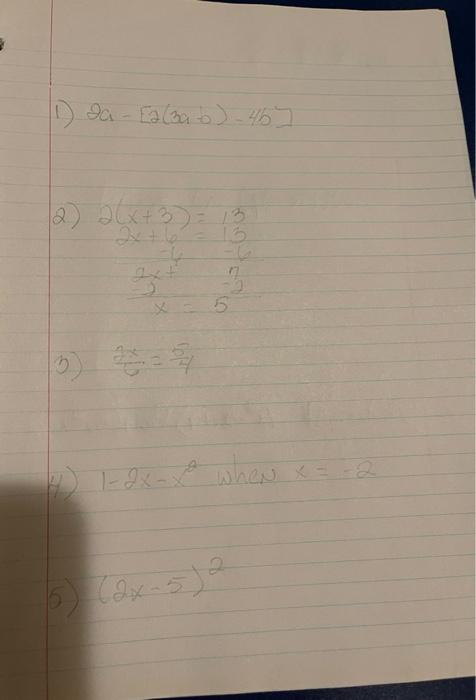 1) 2a - [2(3a-b) - 4b]
2) 2(x+3) = 13
2x + 6 = 13
-6 -6
2x + 7
-2 -2
x = 5
3) 2x/6 = 5/4
4) 1-2x-x² when x = -2
5) (2x-5)²